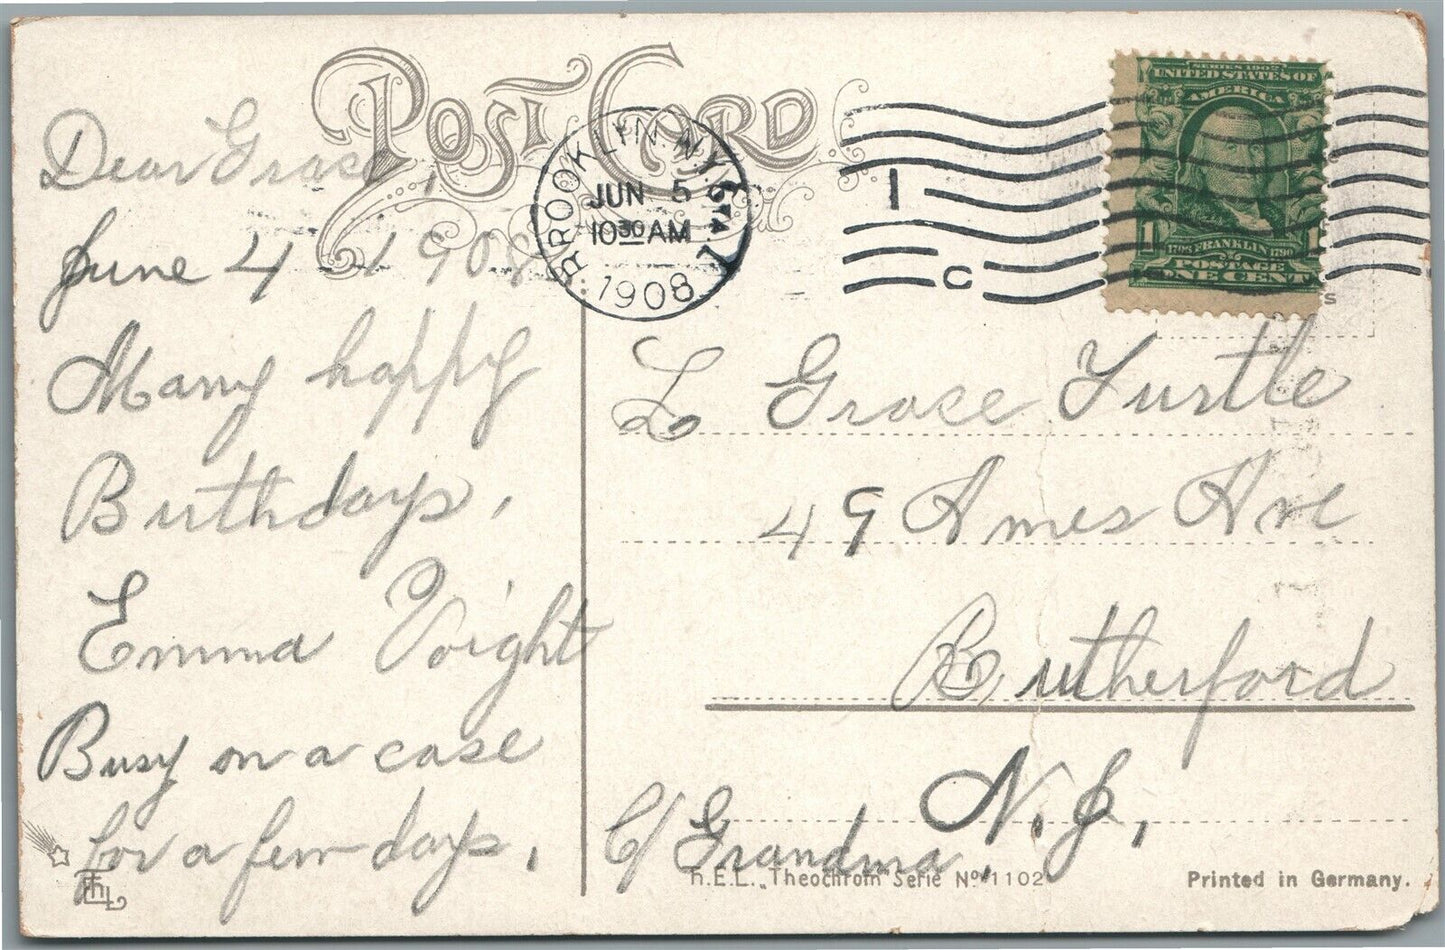 POST CARD
Dear Grace,
June 4 - 1908
Many happy
Birthdays,
Emma Voight
Busy on a case
for a few days,
BROOKLYN, N.Y.
STA.
L
JUN 5
10 30 AM
1908
1
C
SERIES 1902
UNITED STATES OF
AMERICA
1 1
1706 FRANKLIN 1790
POSTAGE
ONE CENT
To Grace Turtle
49 Ames Ave
Rutherford
N.J.,
C/ Grandma,
Th.E.L. „Theochrom" Serie No. 1102
Printed in Germany.